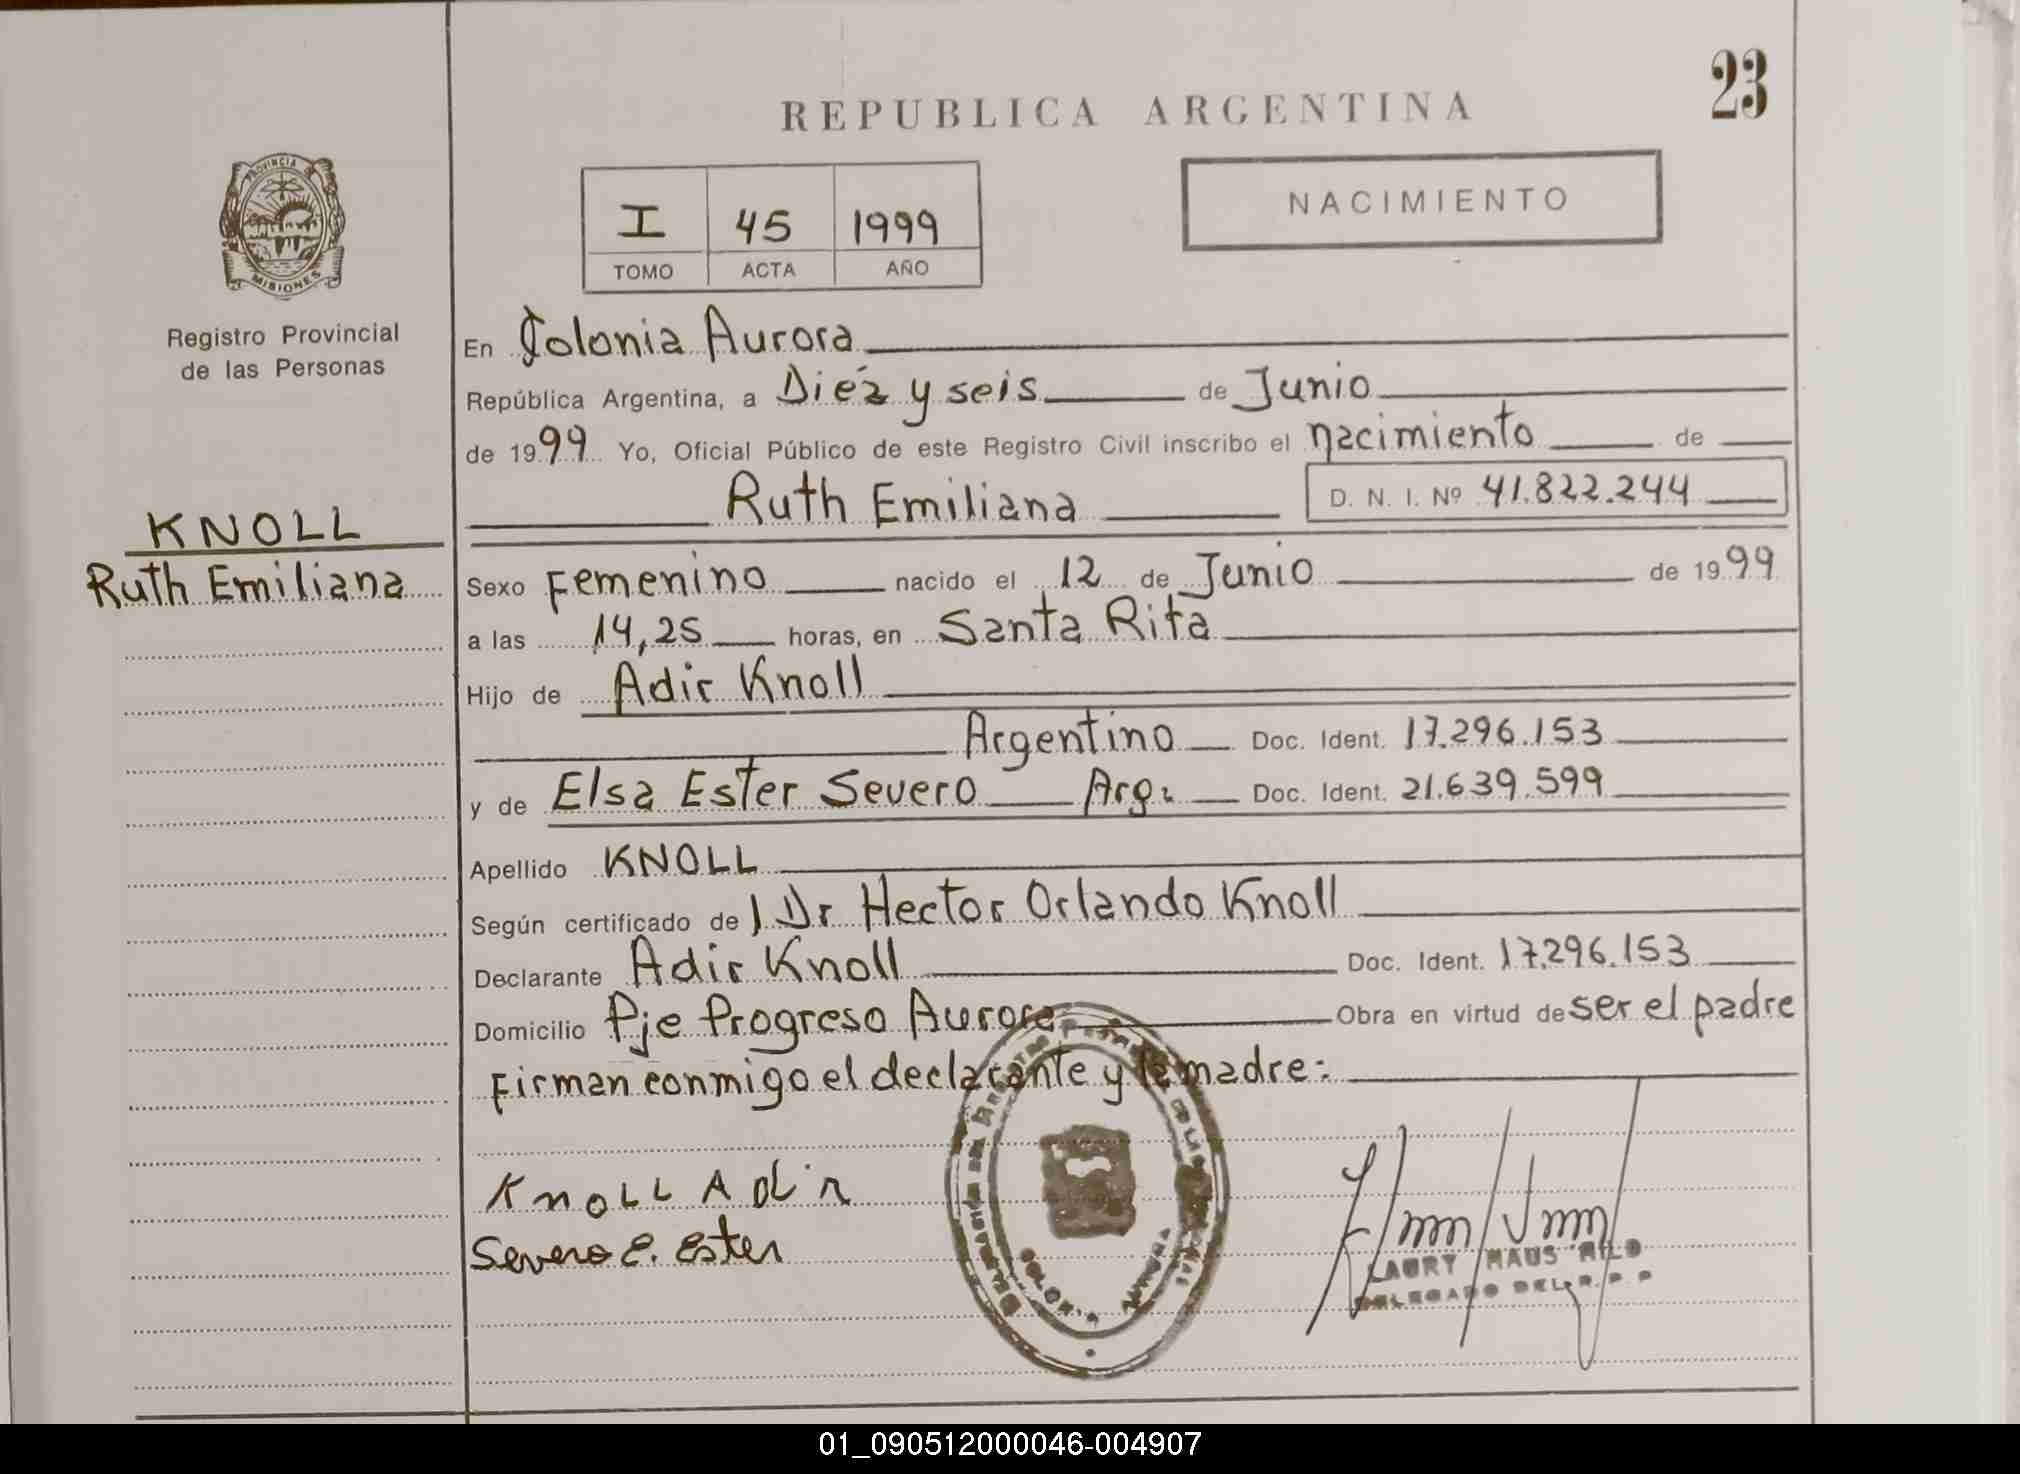 23
REPUBLICA ARGENTINA
NACIMIENTO
I 45 1999
TOMO ACTA AÑO
PROVINCIA
MISIONES
Registro Provincial
de las Personas
KNOLL
Ruth Emiliana
En Colonia Aurora
República Argentina, a Diéz y seis de Junio
de 1999 Yo, Oficial Público de este Registro Civil inscribo el nacimiento de
Ruth Emiliana D. N. I. Nº 41.822.244
Sexo Femenino nacido el 12 de Junio de 1999
a las 14,25 horas, en Santa Rita
Hijo de Adir Knoll
Argentino Doc. Ident. 17.296.153
y de Elsa Ester Severo Arg. Doc. Ident. 21.639.599
Apellido KNOLL
Según certificado de Dr Hector Orlando Knoll
Declarante Adir Knoll Doc. Ident. 17.296.153
Domicilio Pje Progreso Aurora Obra en virtud de ser el padre
Firman conmigo el declarante y la madre:
Knoll Adir
Severo E. Ester
DELEGADO DEL R. P. P
01_090512000046-004907